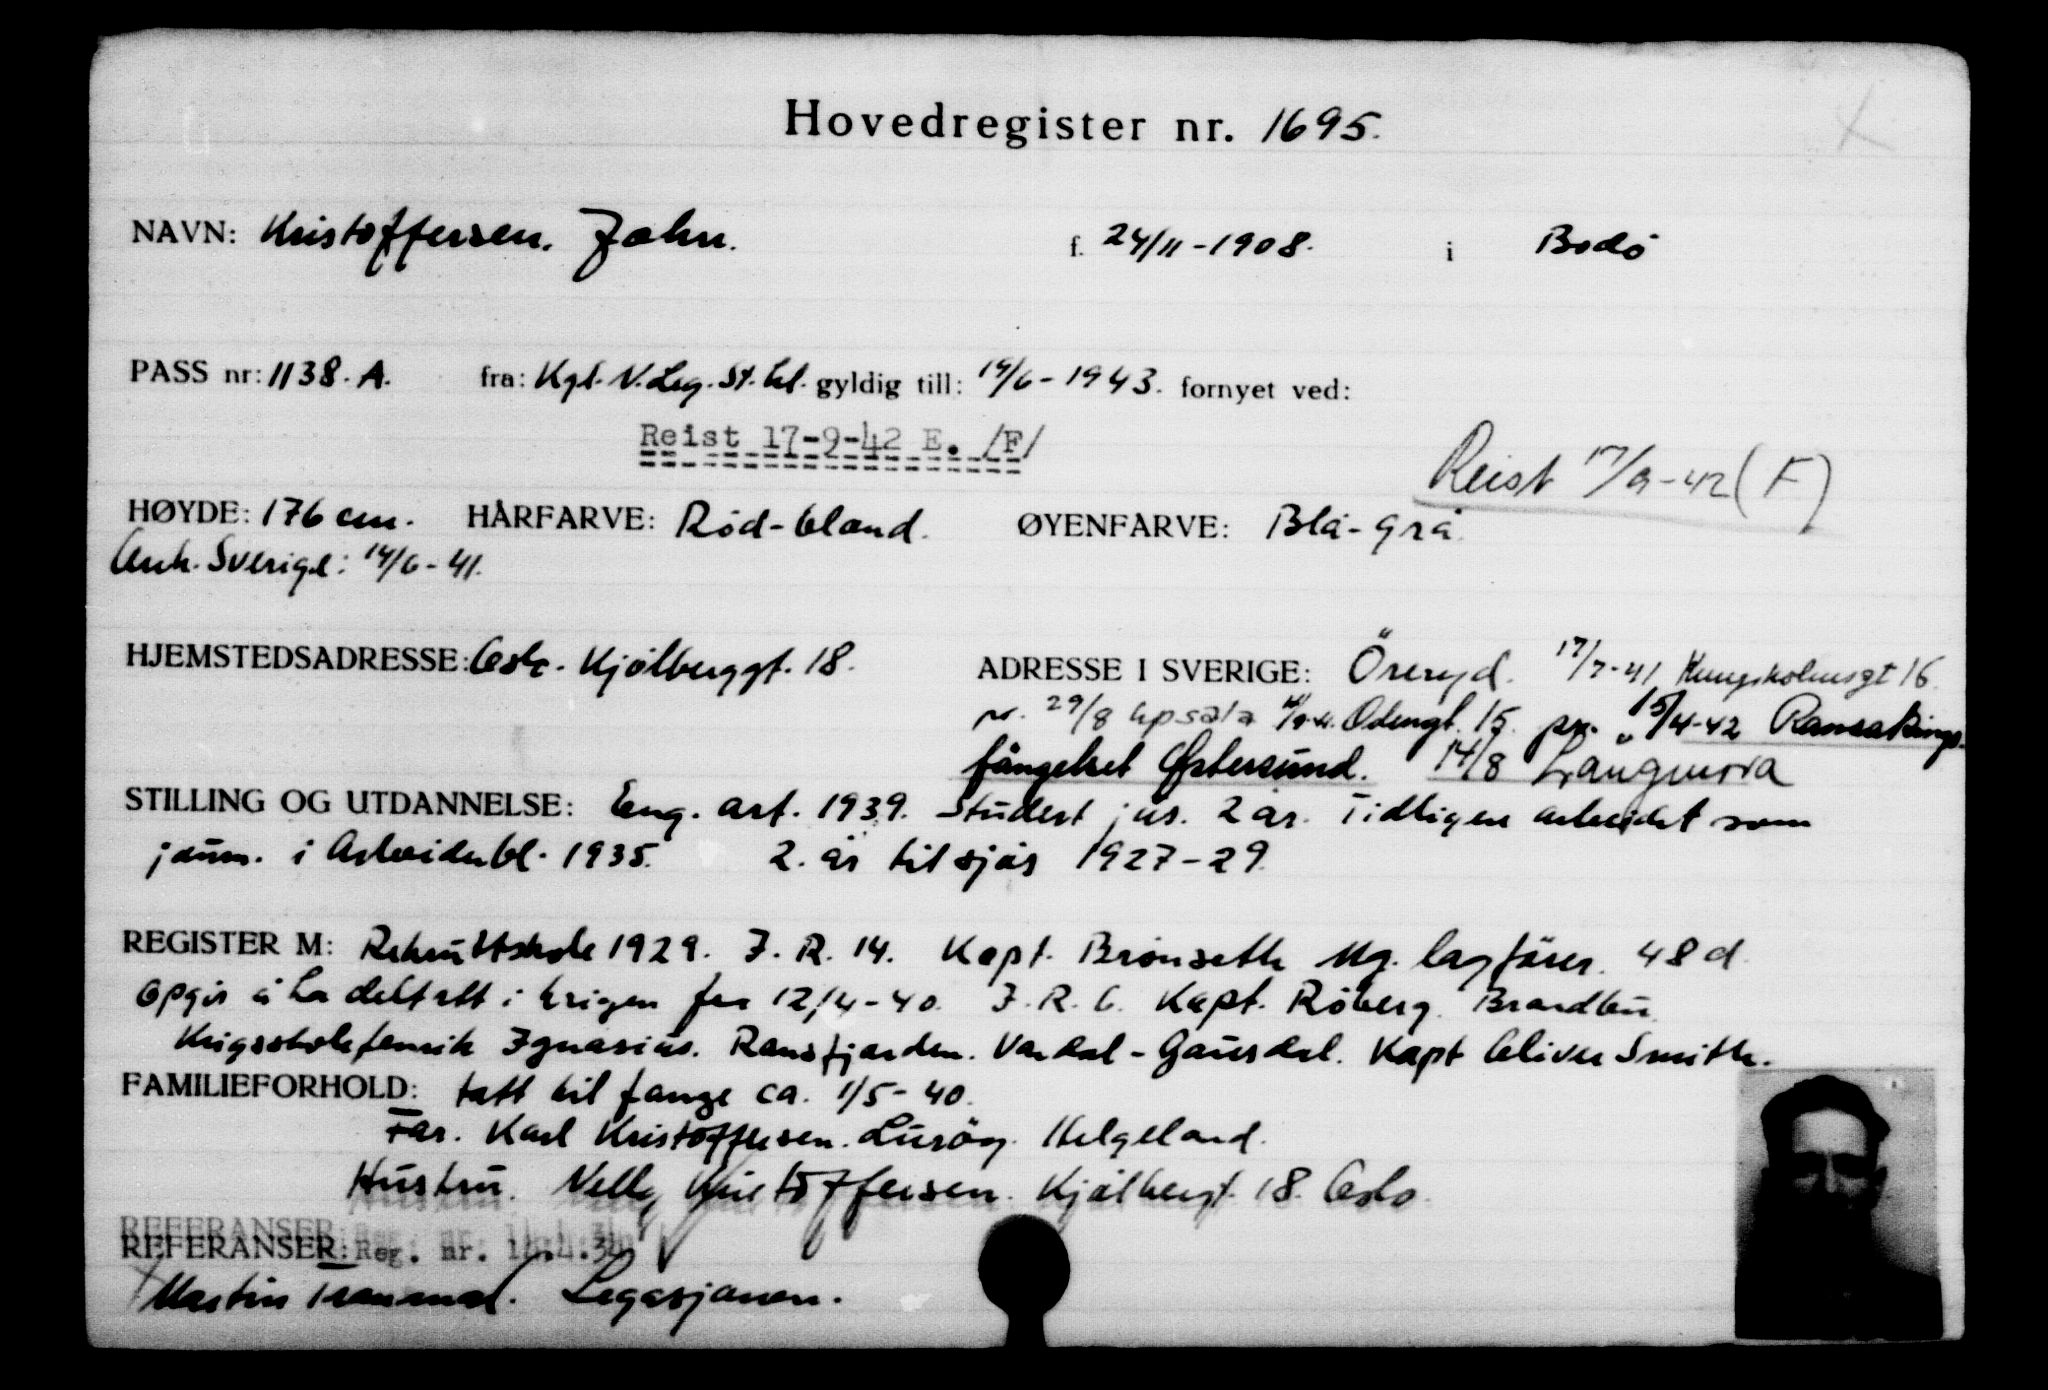 Hovedregister nr. 1695.
NAVN: Kristoffersen. John. f. 24/11-1908. i Bodö
PASS nr: 1138. A. fra: Kgl. N. Leg. St. hl. gyldig till: 14/6-1943. fornyet ved:
Reist 17-9-42 E. /F/
Reist 17/9-42 (F)
HØYDE: 176 cm. HÅRFARVE: Röd-blond. ØYENFARVE: Blå-Grå.
Ank. Sverige: 14/6-41.
HJEMSTEDSADRESSE: Oslo. Kjölberggt. 18. ADRESSE I SVERIGE: Öreryd. 17/7-41 Kungsholmsgt 16.
pr. 29/8 Upsala Odengt. 15. pr. 15/4-42 Ransakings-
fängelset Östersund. 14/8 Långmora
STILLING OG UTDANNELSE: Eng. art. 1939. Studert jus. 2 år. Tidligere arbeidet som
journ. i Arbeiderbl. 1935. 2. år til sjös 1927-29.
REGISTER M: Rekruttskole 1929. I. R. 14. Kapt. Brönseth Mg. lagförer. 48 d.
Opgir å ha deltatt i krigen fra 12/4-40. I. R. 6. Kapt. Röberg. Brandbu.
Krigsskolefenrik Ignasius. Randsfjorden. Vardal-Gausdal. Kapt Oliver Smith.
FAMILIEFORHOLD: tatt til fange ca. 1/5-40.
Far. Karl Kristoffersen. Luröy. Helgeland.
Hustru. Nelly Kristoffersen. Kjölbergt. 18. Oslo.
REFERANSER:
REFERANSER: Reg. nr.
Martin Tranmæl. Legasjonen.